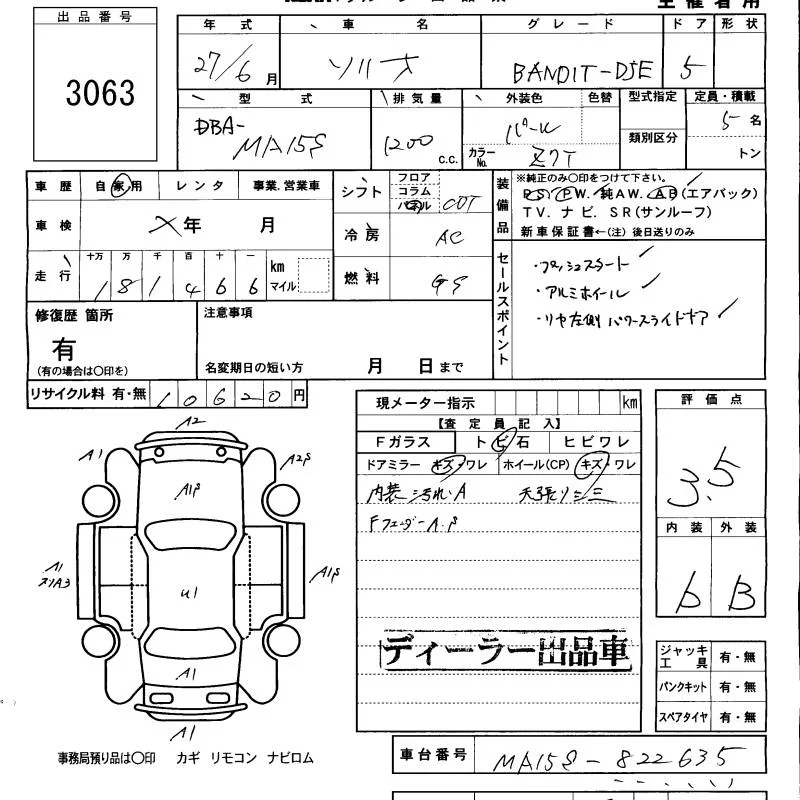 出品番号
3063
年式 車名 グレード ドア 形状
27/6月 ソリオ BANDIT-DJE 5
型式 排気量 外装色 色替 型式指定 定員・積載
DBA-MA15S 1200 c.c. パール 類別区分 5名
カラーNo. Z7T トン
車歴 自家用 レンタ 事業.営業車
車検 年 月
走行 十万 万 千 百 十 一 km マイル
1 8 1 4 6 6
シフト フロア コラム パネル CVT
冷房 AC
燃料 GS
装備品
※純正のみ〇印をつけて下さい。
PS. PW. 純AW. AB(エアバック)
TV. ナビ. SR(サンルーフ)
新車保証書←(注) 後日送りのみ
セールスポイント
・プッシュスタート
・アルミホイール
・リヤ左側パワースライドドア
修復歴 箇所
有
(有の場合は〇印を)
注意事項
名変期日の短い方 月 日まで
リサイクル料 有・無 10620円
現メーター指示 km
【査定員記入】
Fガラス トビ石 ヒビワレ
ドアミラー キズ・ワレ ホイール(CP) キズ・ワレ
内装汚れA 天張りシミ
Fフェンダー A・P
ディーラー出品車
評価点
3.5
内装 外装
b B
A2
A1
A2P
A1P
A1
スリA3
U1
A1P
A1
A1
ジャッキ工具 有・無
パンクキット 有・無
スペアタイヤ 有・無
事務局預り品は〇印 カギ リモコン ナビロム
車台番号 MA15S-822635